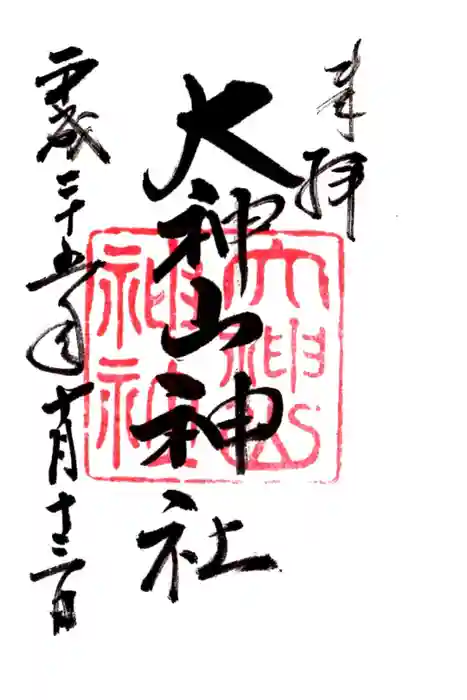 奉拝
大神山神社
平成二十五年十月十三日
大神山
神社